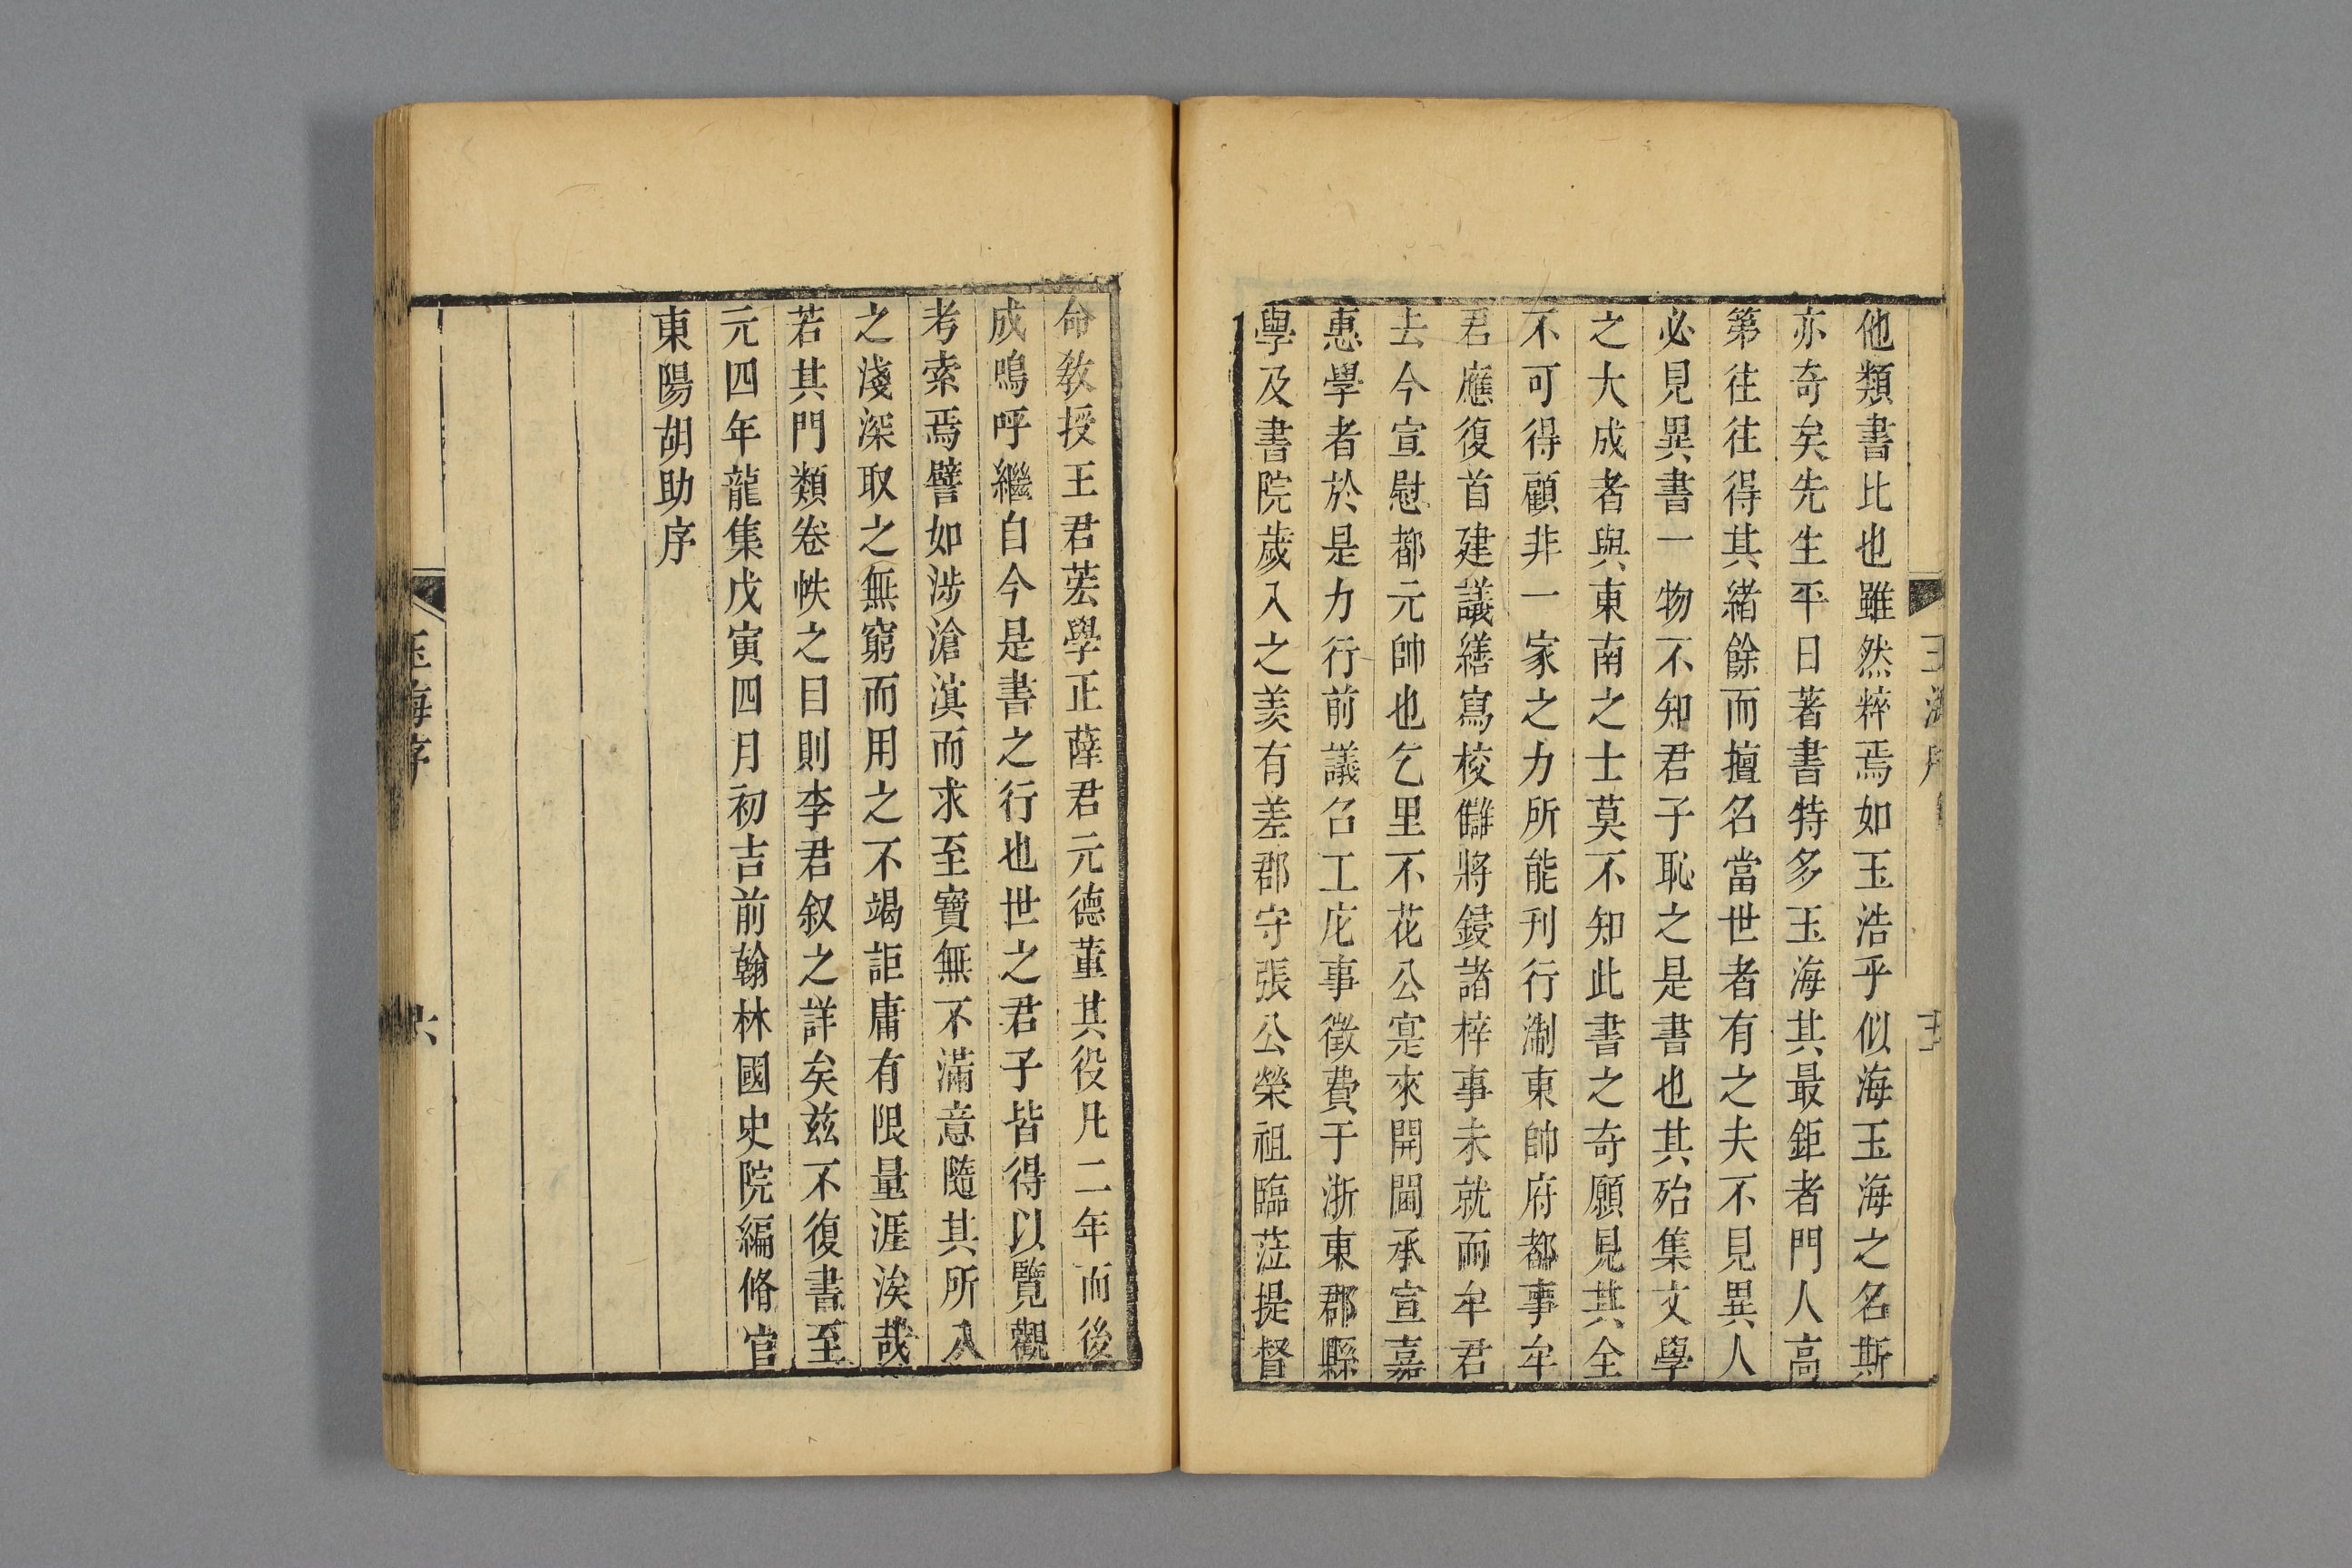 他類書比也雖然粹焉如玉浩乎似海玉海之名斯
亦奇矣先生平日著書特多玉海其最鉅者門人高
第往往得其緒餘而擅名當世者有之夫不見異人
必見異書一物不知君子恥之是書也其殆集文學
之大成者與東南之士莫不知此書之奇願見其全
不可得顧非一家之力所能刊行淛東帥府都事牟
君應復首建議繕寫校讎將鋟諸梓事未就而牟君
去今宣慰都元帥也乞里不花公寔來開閫承宣嘉
惠學者於是力行前議召工庀事徵費于浙東郡縣
學及書院歲入之羨有差郡守張公榮祖臨蒞提督
命教授王君荖學正薛君元德董其役凡二年而後
成嗚呼繼自今是書之行也世之君子皆得以覽觀
考索焉譬如涉滄溟而求至寶無不滿意隨其所入
之淺深取之無窮而用之不竭詎庸有限量涯涘哉
若其門類卷帙之目則李君叙之詳矣茲不復書至
元四年龍集戊寅四月初吉前翰林國史院編脩官
東陽胡助序
玉海序
六